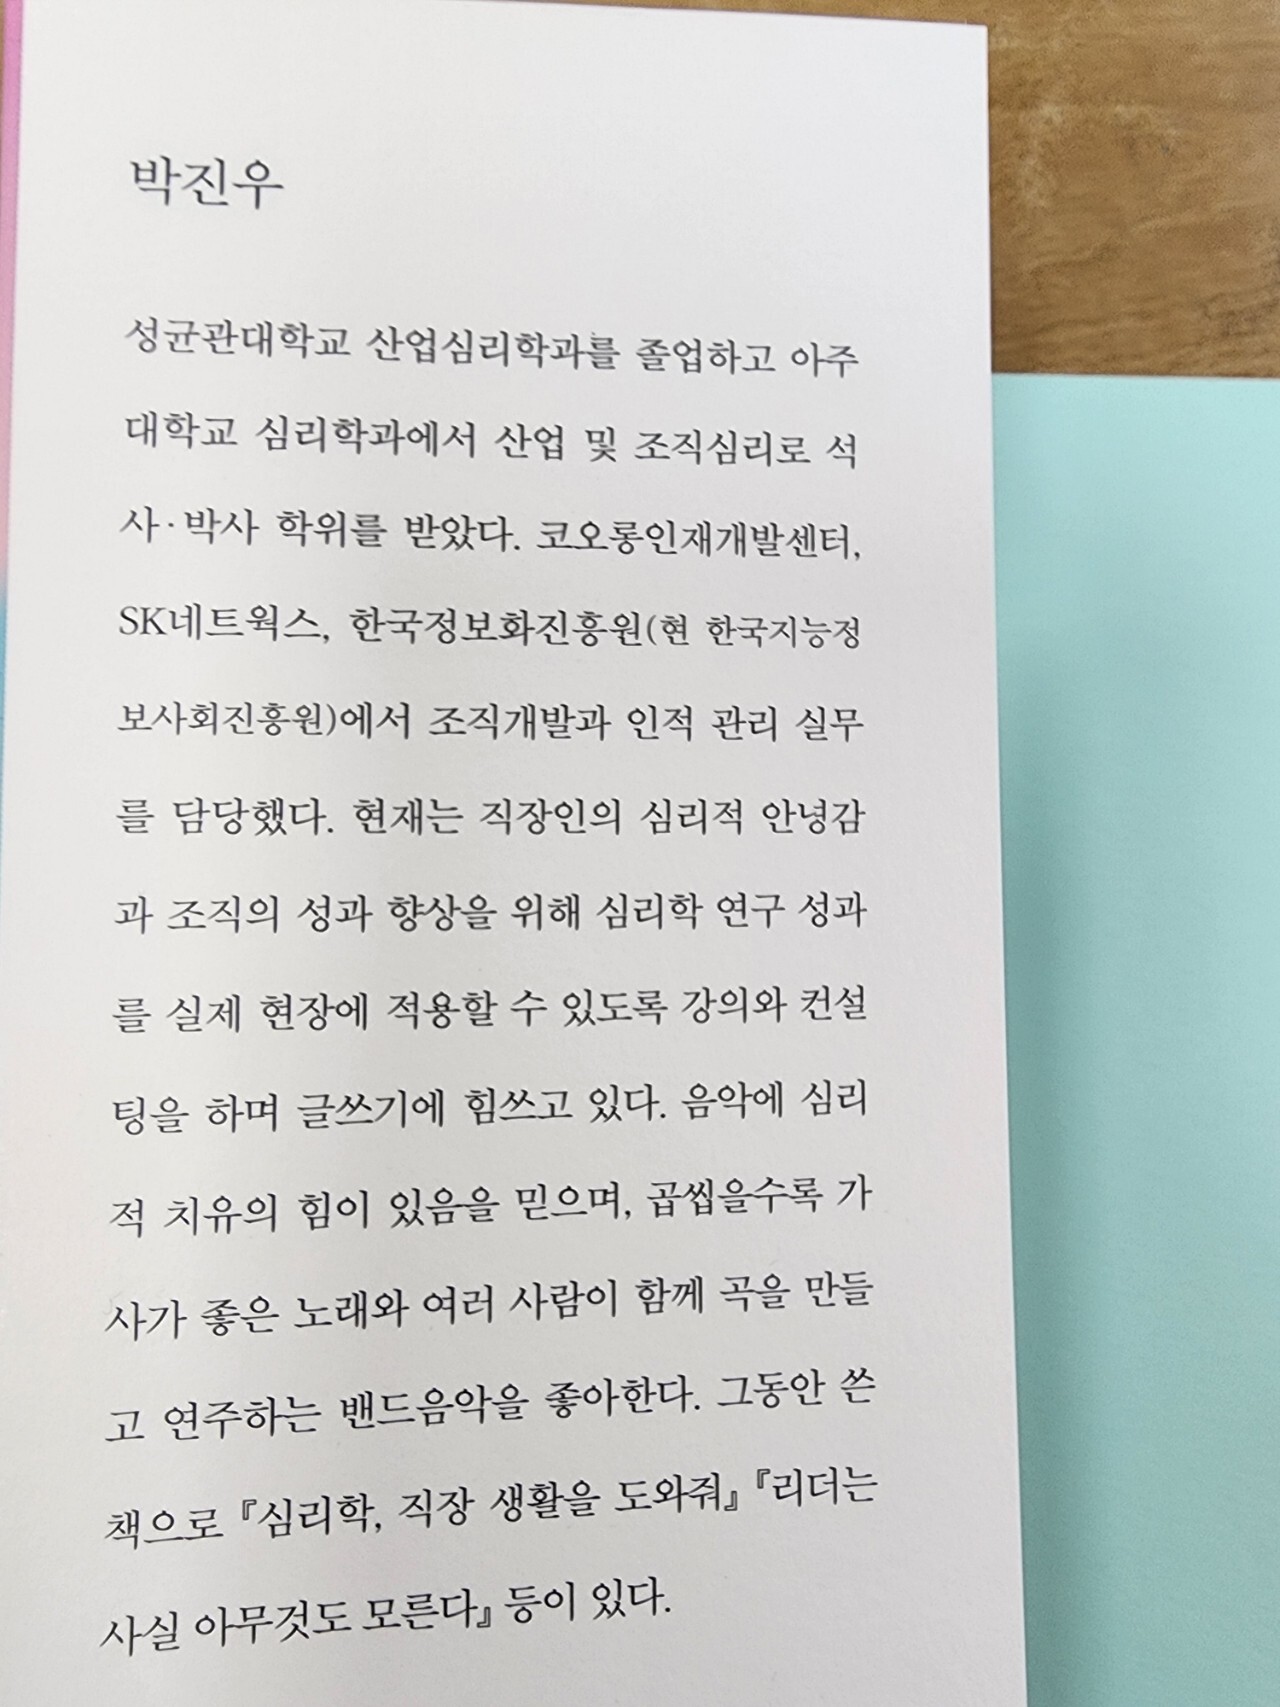 박진우
성균관대학교 산업심리학과를 졸업하고 아주
대학교 심리학과에서 산업 및 조직심리로 석
사·박사 학위를 받았다. 코오롱인재개발센터,
SK네트웍스, 한국정보화진흥원(현 한국지능정
보사회진흥원)에서 조직개발과 인적 관리 실무
를 담당했다. 현재는 직장인의 심리적 안녕감
과 조직의 성과 향상을 위해 심리학 연구 성과
를 실제 현장에 적용할 수 있도록 강의와 컨설
팅을 하며 글쓰기에 힘쓰고 있다. 음악에 심리
적 치유의 힘이 있음을 믿으며, 곱씹을수록 가
사가 좋은 노래와 여러 사람이 함께 곡을 만들
고 연주하는 밴드음악을 좋아한다. 그동안 쓴
책으로 『심리학, 직장 생활을 도와줘』 『리더는
사실 아무것도 모른다』 등이 있다.